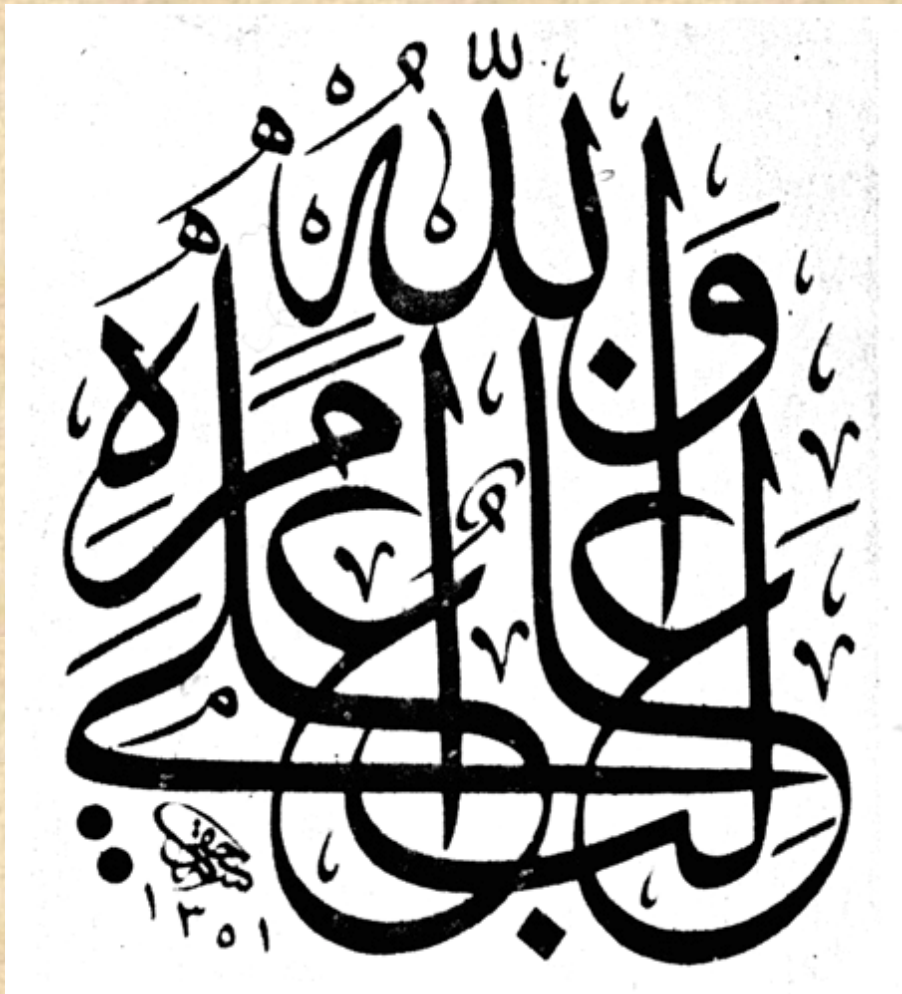 والله غالب على أمره
١٣٥١